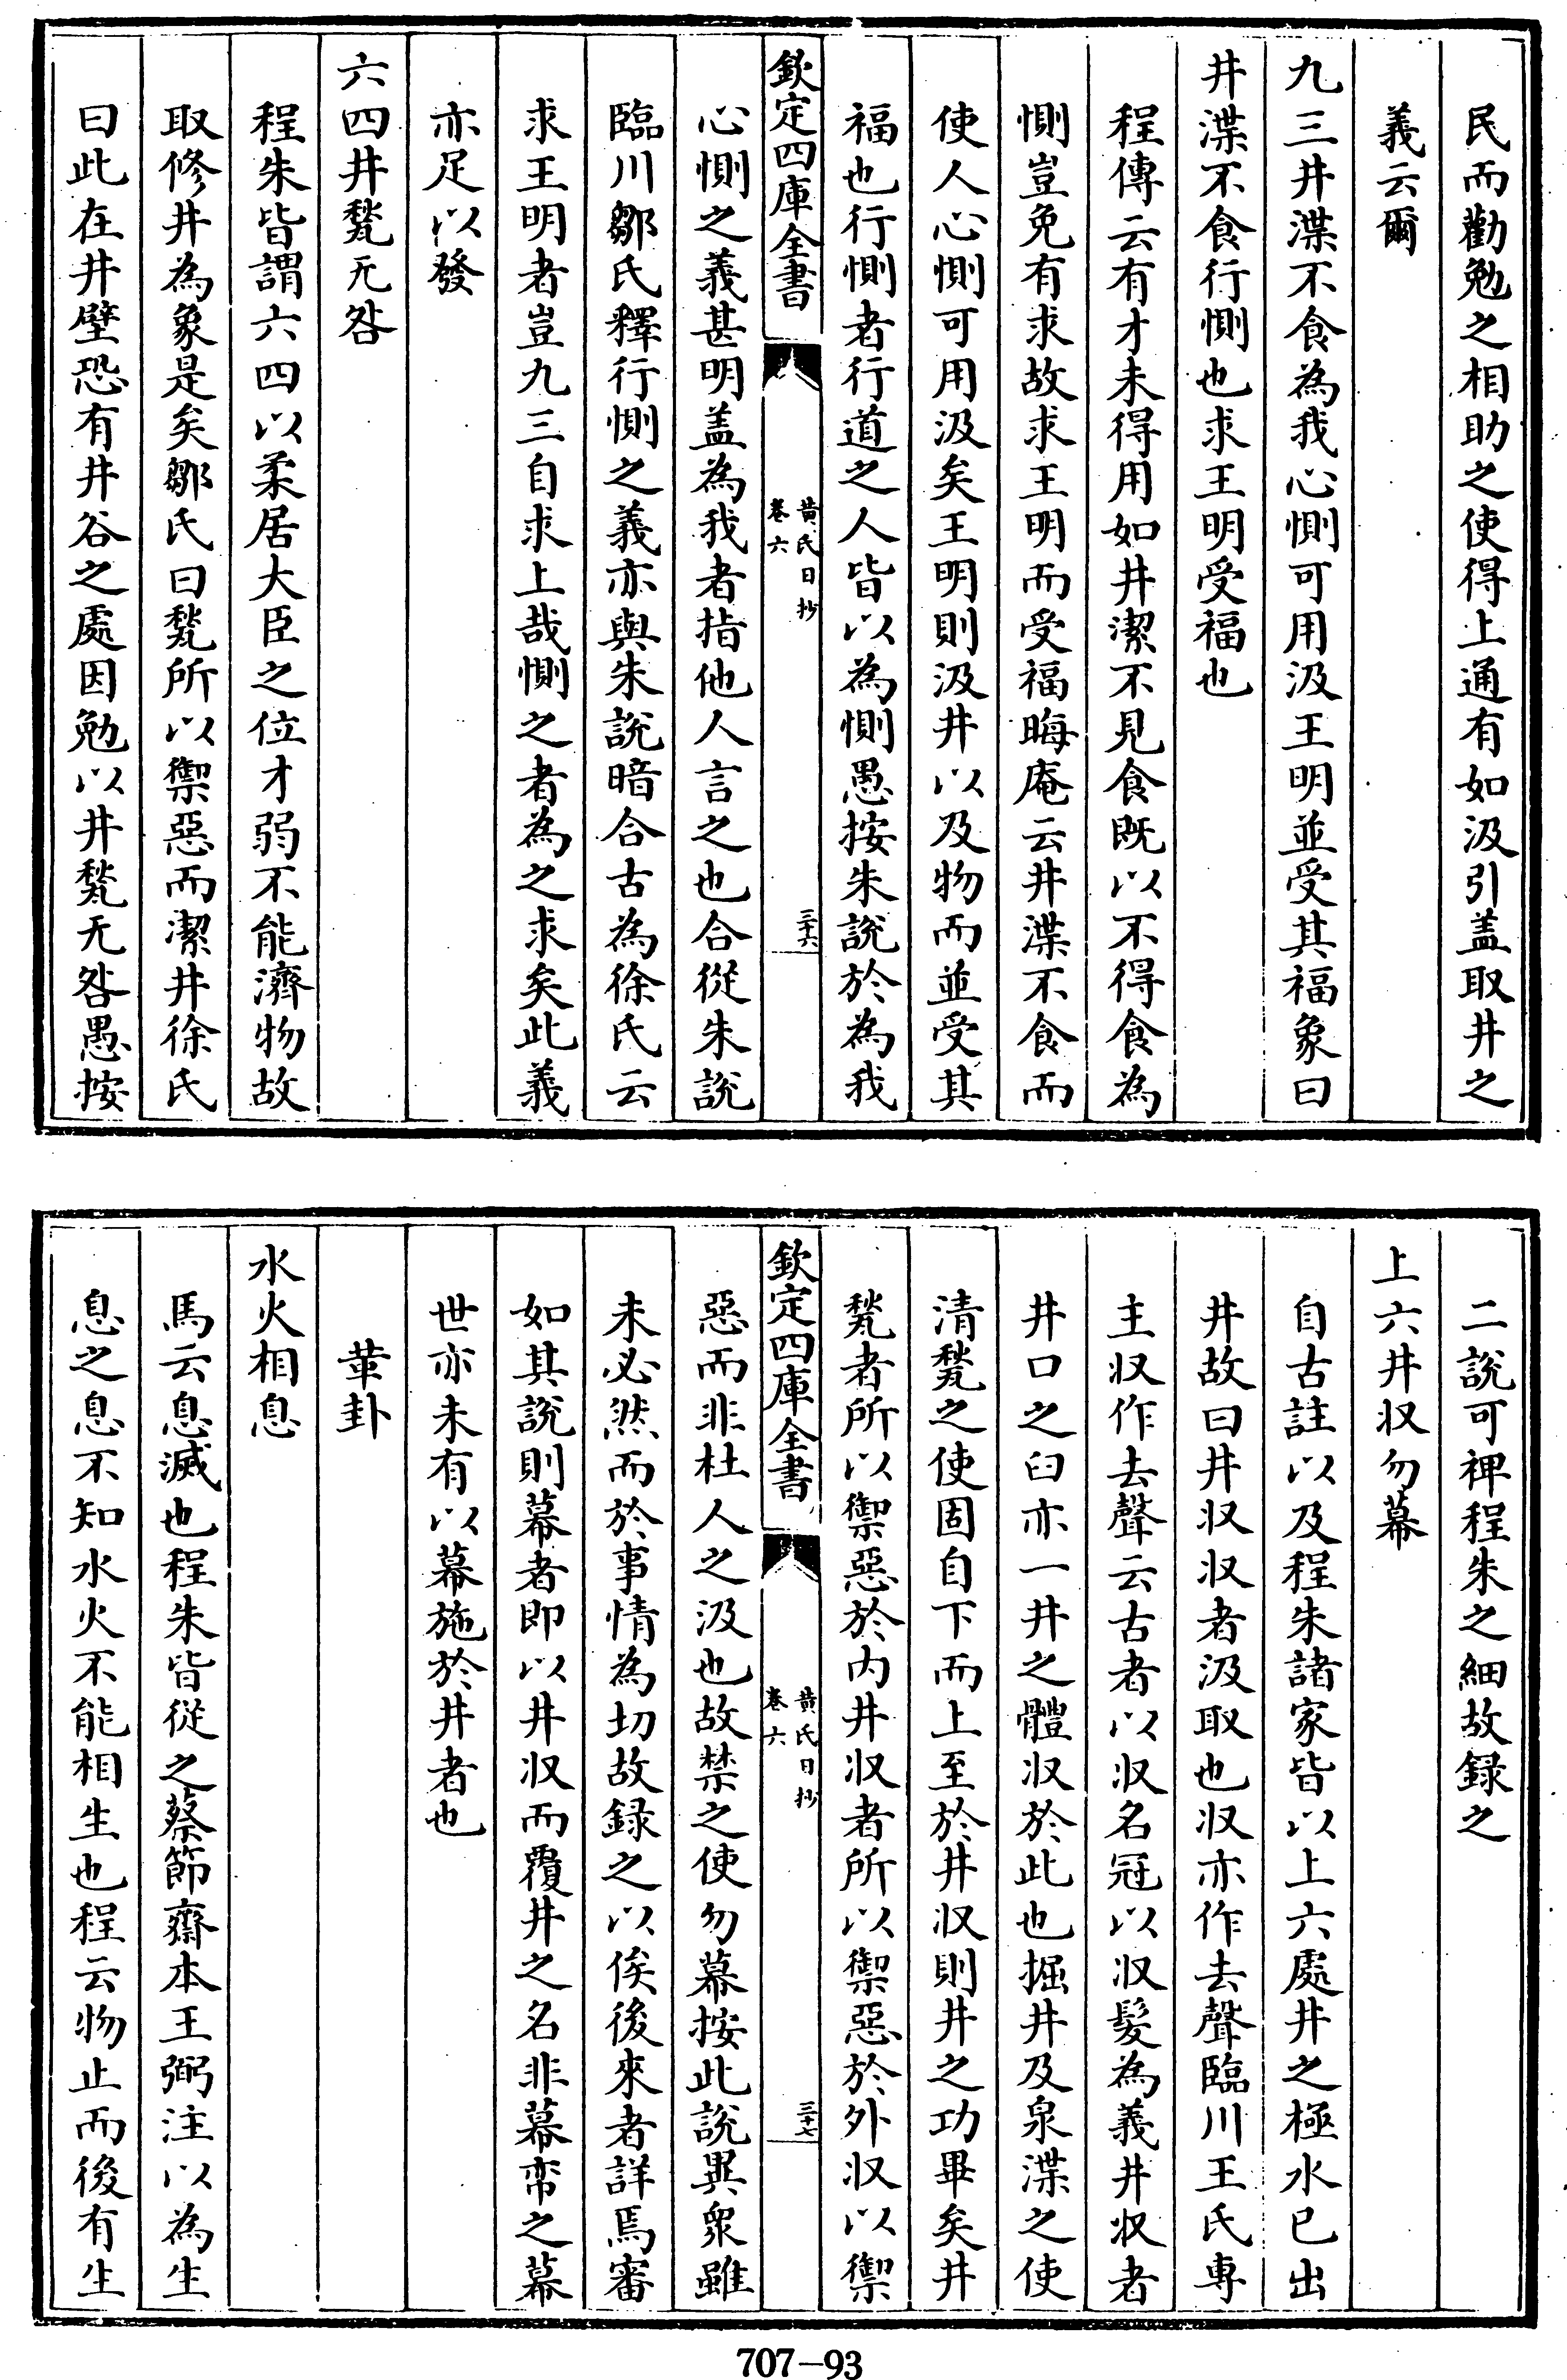 民而勸勉之相助之使得上通有如汲引盖取井之
義云爾
九三井渫不食為我心惻可用汲王明並受其福象曰
井渫不食行惻也求王明受福也
程傳云有才未得用如井潔不見食既以不得食為
惻豈免有求故求王明而受福晦庵云井渫不食而
使人心惻可用汲矣王明則汲井以及物而並受其
福也行惻者行道之人皆以為惻愚按朱說於為我
欽定四庫全書
黄氏日抄
卷六
三十六
心惻之義甚明盖為我者指他人言之也合從朱說
臨川鄒氏釋行惻之義亦與朱說暗合古為徐氏云
求王明者豈九三自求上哉惻之者為之求矣此義
亦足以發
六四井甃无咎
程朱皆謂六四以柔居大臣之位才弱不能濟物故
取修井為象是矣鄒氏曰甃所以禦惡而潔井徐氏
曰此在井壁恐有井谷之處因勉以井甃无咎愚按
二說可裨程朱之細故録之
上六井収勿幕
自古註以及程朱諸家皆以上六處井之極水已出
井故曰井収収者汲取也収亦作去聲臨川王氏専
主収作去聲云古者以収名冠以収髮為義井収者
井口之臼亦一井之體収於此也掘井及泉渫之使
清甃之使固自下而上至於井収則井之功畢矣井
甃者所以禦惡於内井収者所以禦惡於外収以禦
欽定四庫全書
黄氏日抄
卷六
三十七
惡而非杜人之汲也故禁之使勿幕按此說異衆雖
未必然而於事情為切故録之以俟後來者詳焉審
如其說則幕者即以井収而覆井之名非幕帟之幕
世亦未有以幕施於井者也
革卦
水火相息
馬云息滅也程朱皆從之蔡節齋本王弼注以為生
息之息不知水火不能相生也程云物止而後有生
707-93